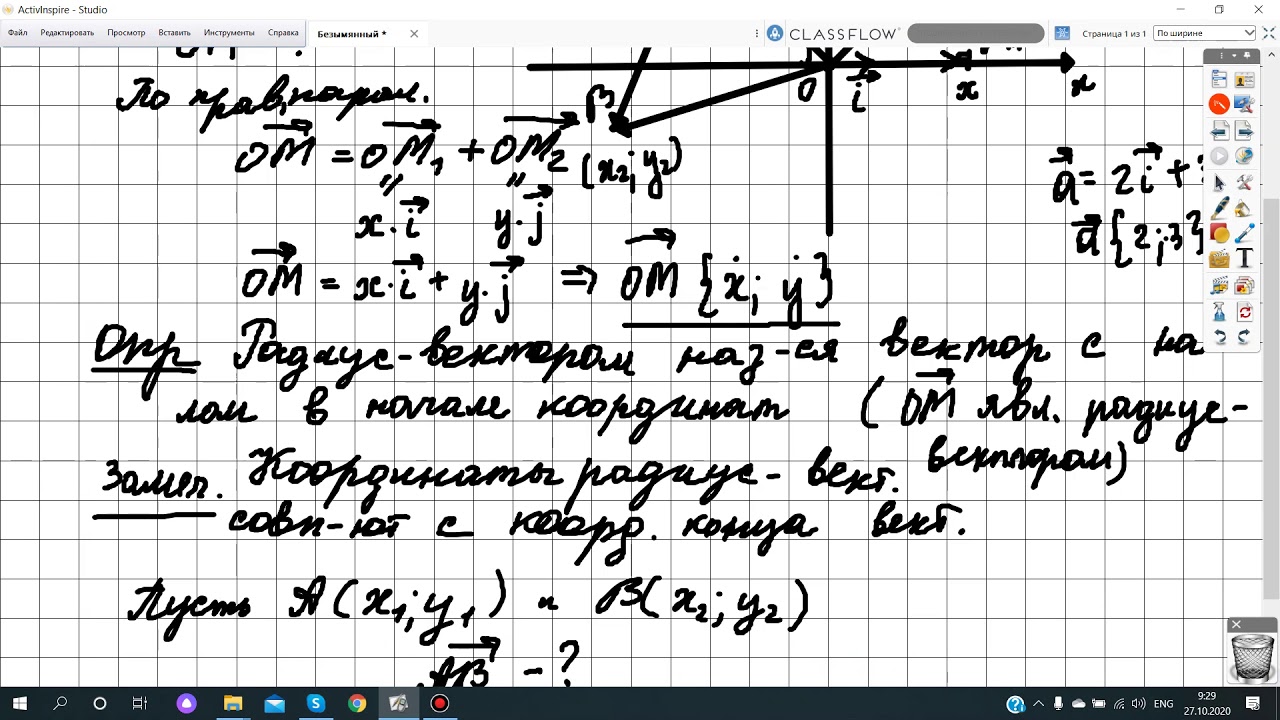 ActivInspire - Studio
Файл Редактировать Просмотр Вставить Инструменты Справка Безымянный * CLASSFLOW Страница 1 из 1 По ширине
По прав. парал.
OM = OM₁ + OM₂
x · i y · j
B
(x₂; y₂)
O i x x
a = 2i +
a {2; 3}
OM = x · i + y · j ⇒ OM {x; y}
Опр Радиус-вектором наз-ся вектор с на
лом в начале координат (OM явл. радиус-
вектором)
Замеч. Координаты радиус-вект.
совп-ют с коорд. конца вект.
Пусть A(x₁; y₁) и B(x₂; y₂)
AB - ?
ENG 9:29
27.10.2020